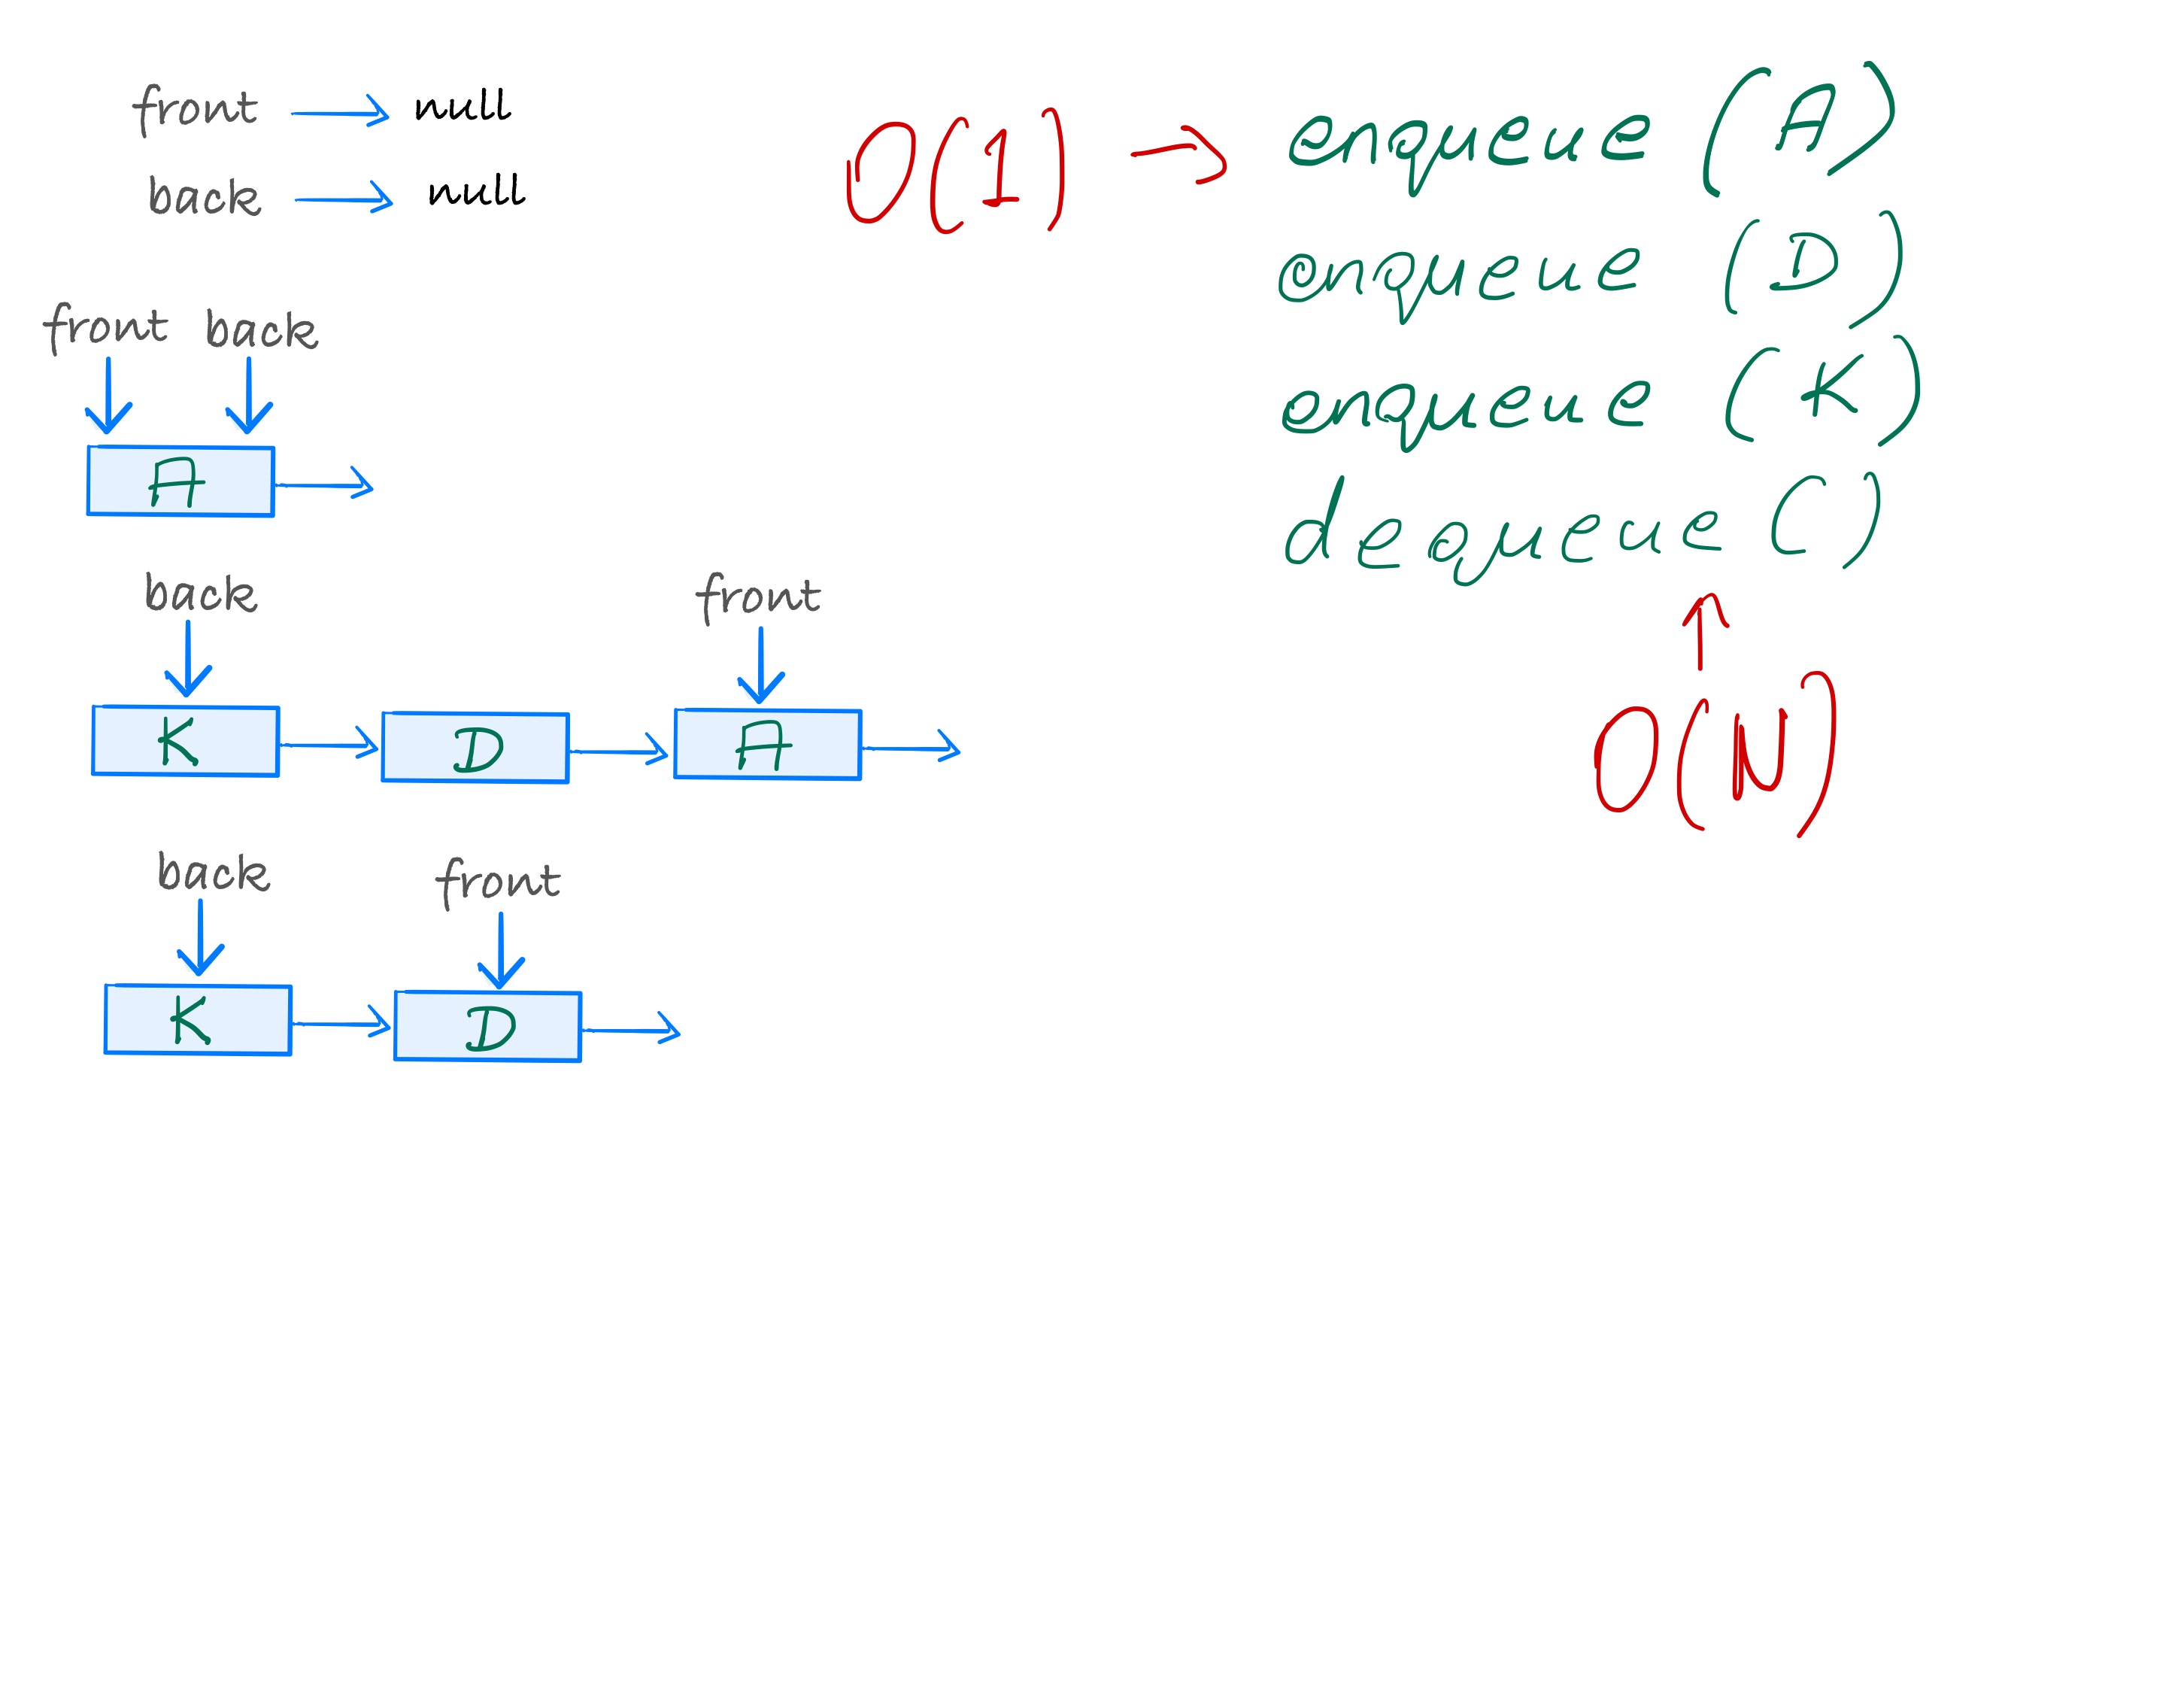 front → null
back → null
front back
A
back front
K D A
back front
K D
O(1) → enqueue (A)
enqueue (D)
enqueue (K)
dequeue ( )
O(N)